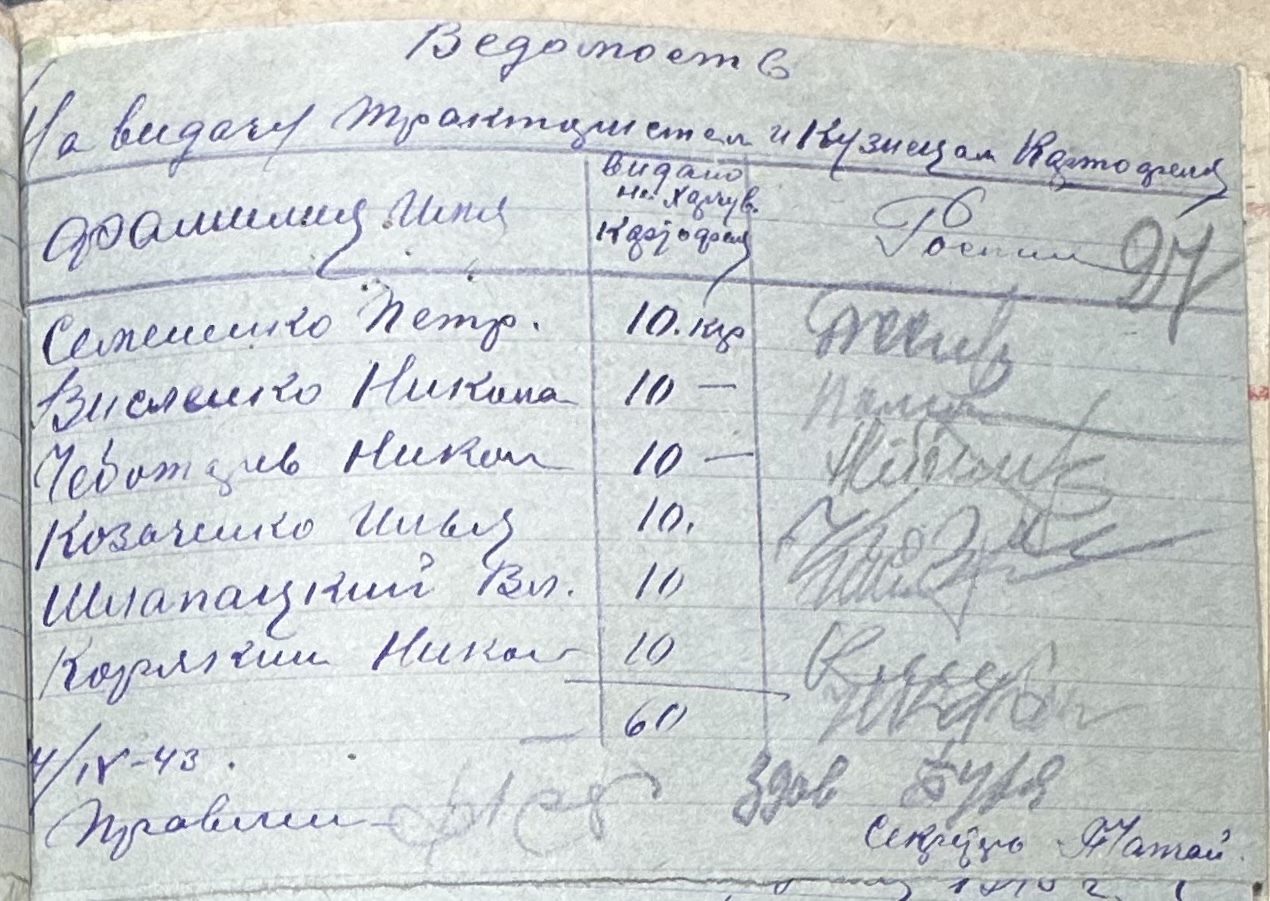 Ведомость
На видачу трактористам и Кузнецам Картофеля
Фамилия Имя
Видано на харчув. Картофеля
Роспис
97
Семененко Петр. 10. кг
Висленко Никола 10 —
Чеботарев Никол 10 —
Козаченко Илья 10.
Шлапацкий Вл. 10
Корякин Никол 10
60
4/IV-43.
Правлени
Здав Буря
Секретарь